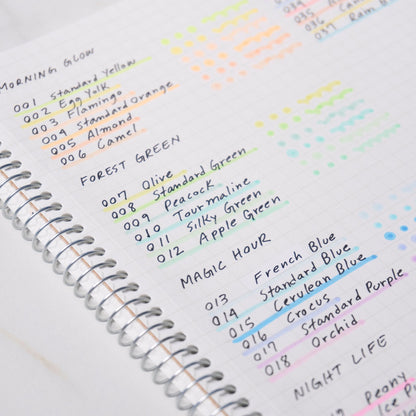 MORNING GLOW
001 Standard Yellow
002 Egg Yolk
003 Flamingo
004 Standard Orange
005 Almond
006 Camel
FOREST GREEN
007 Olive
008 Standard Green
009 Peacock
010 Tourmaline
011 Silky Green
012 Apple Green
MAGIC HOUR
013 French Blue
014 Standard Blue
015 Cerulean Blue
016 Crocus
017 Standard Purple
018 Orchid
NIGHT LIFE
Peony
Ice
035
036
037